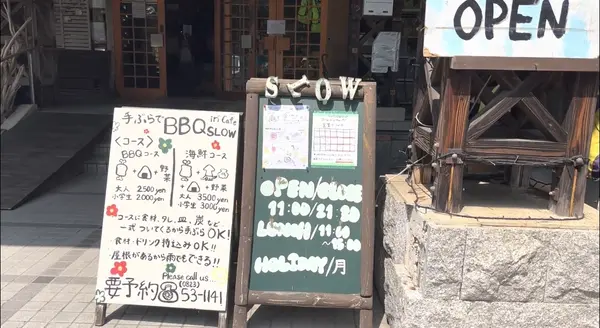 手ぶらで
BBQ
iri Cafe
SLOW
〈コース〉
BBQコース
+ + 野菜
大人 2500yen
小学生 2000yen
海鮮コース
+ + 野菜
大人 3500yen
小学生 3000yen
・コースに食材、タレ、皿、炭など
一式ついてくるから手ぶらOK!
・食材・ドリンク持込みOK!!
・屋根があるから雨でもできる!!
Please call us...
要予約☎(0823)53-1141
SLOW
OPEN/CLOSE
11:00/21:30
LUNCH/11:00
~15:00
HOLIDAY/月
OPEN